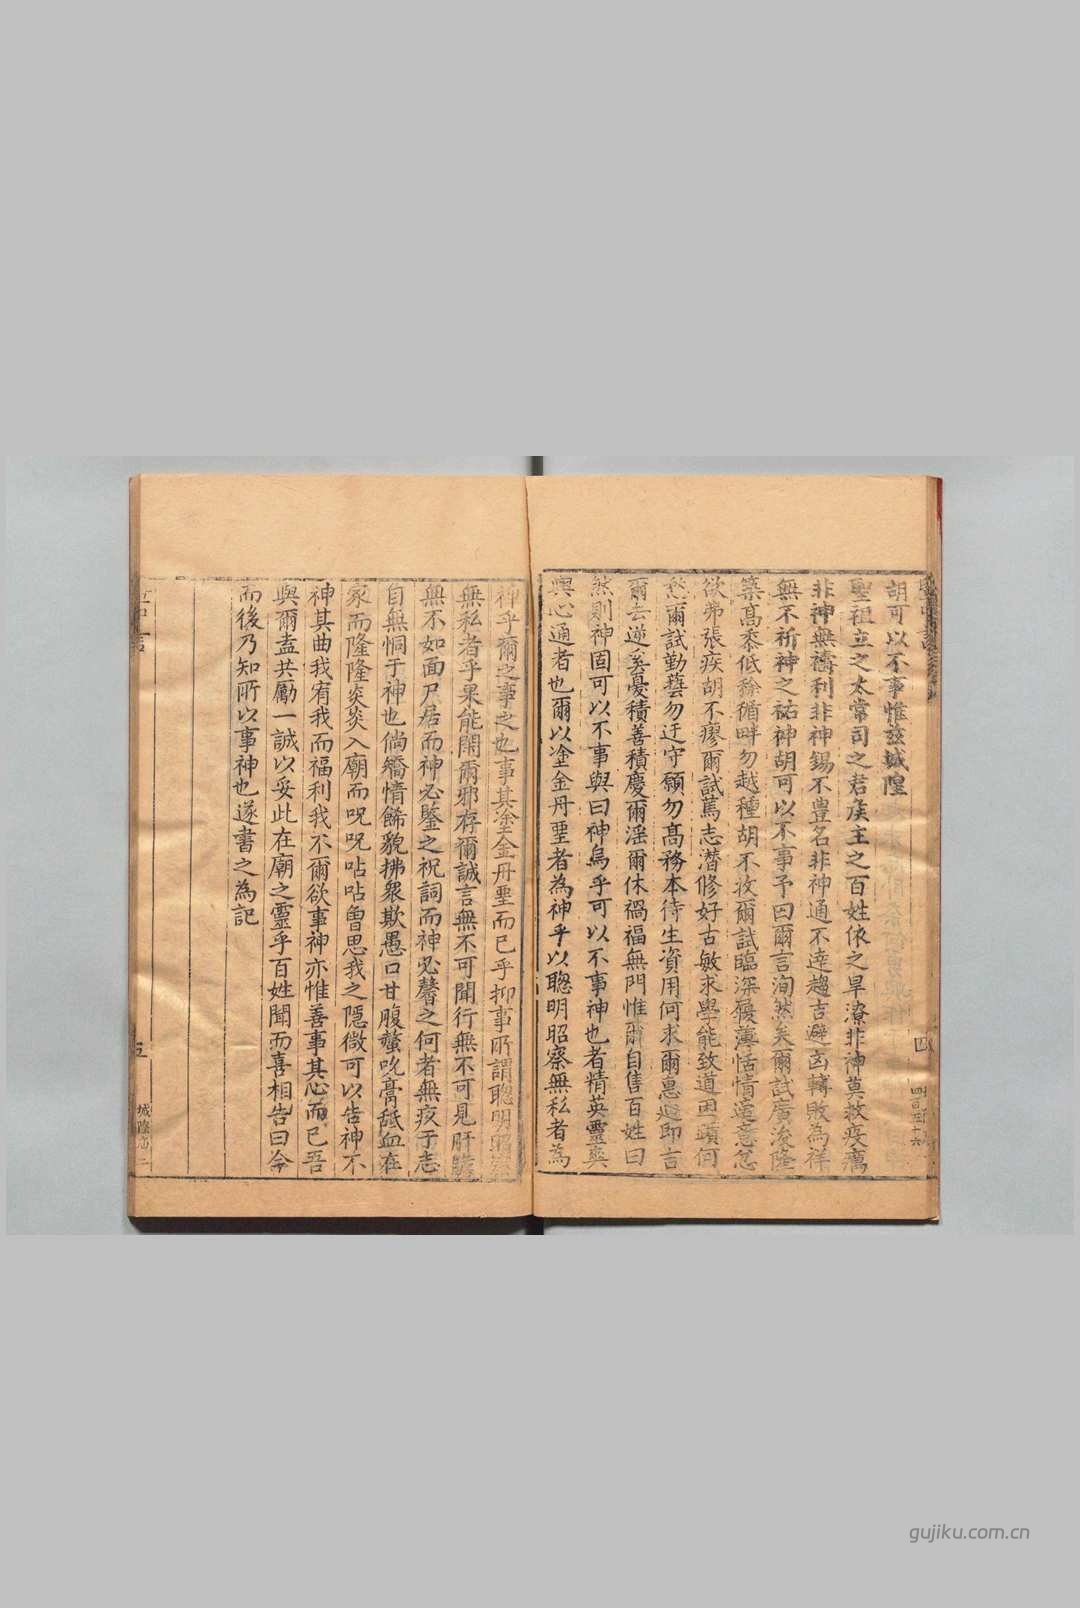 胡可以不事惟兹城隍
聖祖立之太常司之君矦主之百姓依之旱潦非神莫救疫癘
非神無禱利非神錫不豊名非神通不達趨吉避凶轉敗為祥
無不祈神之祐神胡可以不事予曰爾言洵然矣爾試廣浚隆
築髙黍低稌循畔勿越種胡不收爾試臨深履薄恬情
欲弗張疾胡不瘳爾試篤志潛修好古敏求學能致道困躓何
愁爾試勤蓺勿迂守願勿髙務本待生資用何求爾惠迪即吉
爾去逆奚憂積善積慶爾淫爾休禍福無門惟爾自售百姓曰
然則神固可以不事與曰神烏乎可以不事神也者精英靈爽
與心通者也爾以塗金丹堊者為神乎以聰明昭察無私者為
神乎爾之事之也事其塗金丹堊而已乎抑事所謂聰明昭察
無私者乎果能閑爾邪存爾誠言無不可聞行無不可見肝膽
無不如面尸居而神必鑒之祝詞而神必馨之何者無疚于志
自無恫于神也倘矯情餙貌拂衆欺愚口甘腹螫吮膏舐血在
家而隆隆炎炎入廟而呪呪呫呫曾思我之隱微可以告神不
神其曲我宥我而福利我不爾欲事神亦惟善事其心而已吾
與爾盍共勵一誠以妥此在廟之靈乎百姓聞而喜相告曰今
而後乃知所以事神也遂書之為記
五
城隍廟二
四
gujiku.com.cn